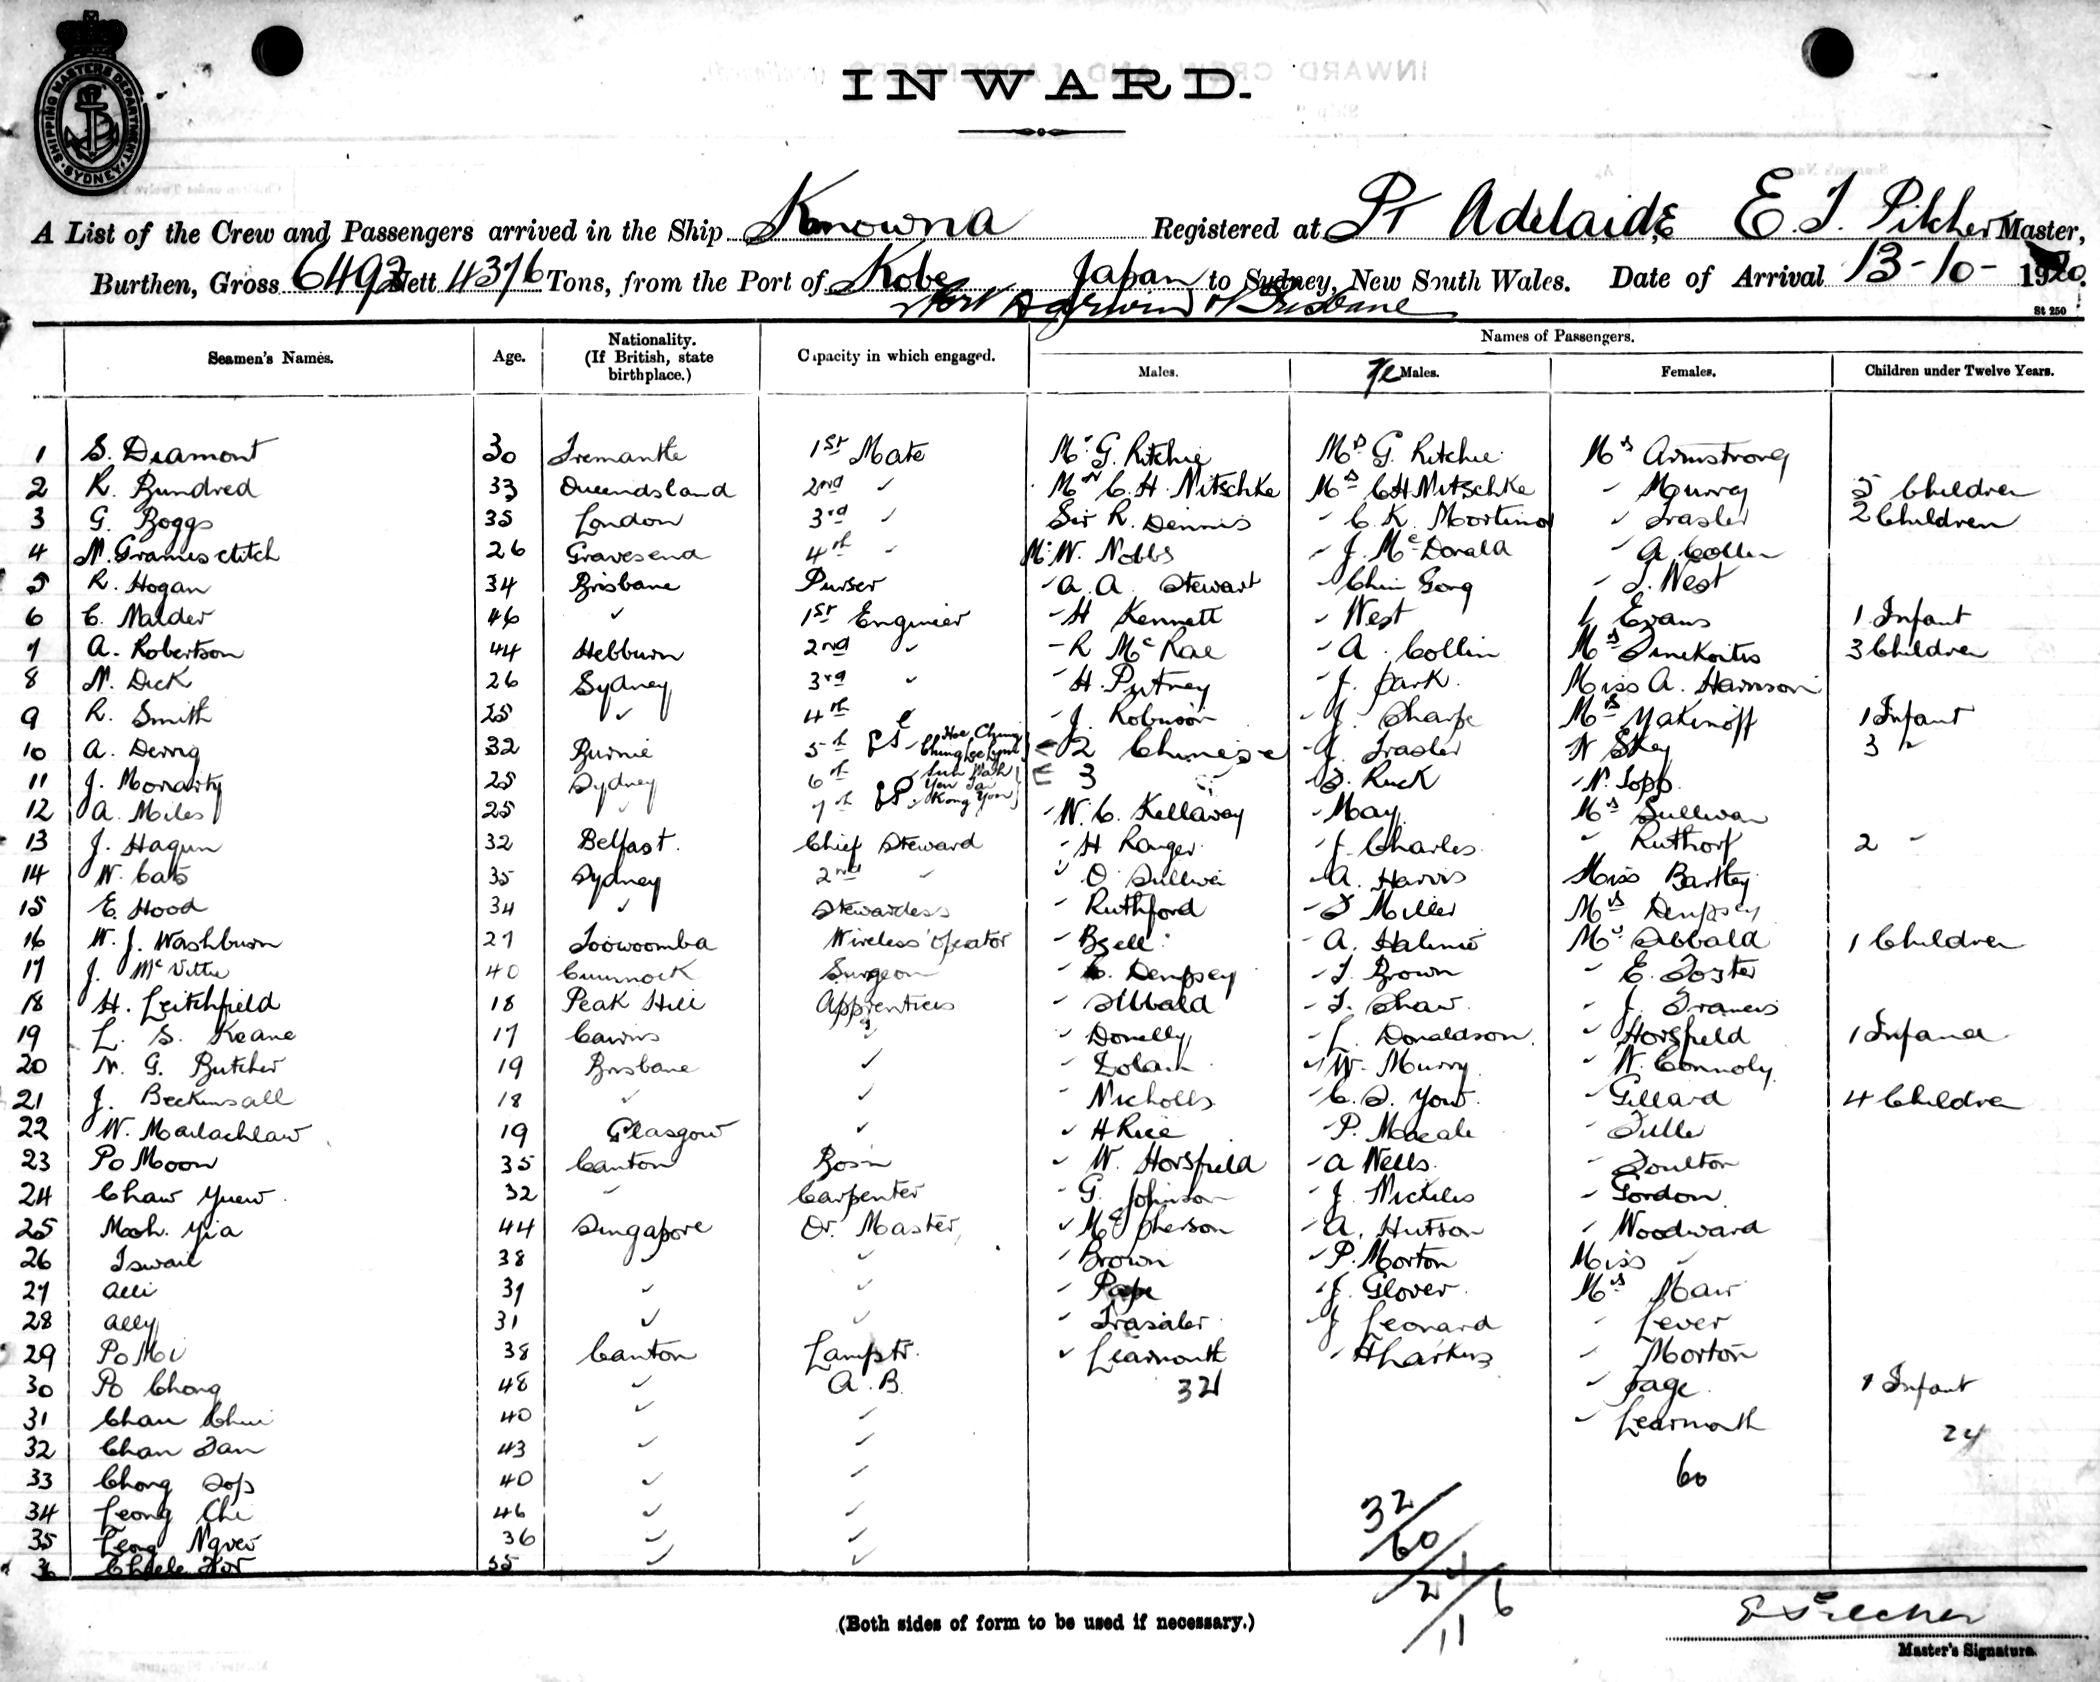 SHIPPING MASTERS DEPARTMENT
SYDNEY
INWARD.
A List of the Crew and Passengers arrived in the Ship Kanowna Registered at Pt Adelaide E. J. Pilcher Master,
Burthen, Gross 6492 Nett 4376 Tons, from the Port of Kobe Japan to Sydney, New South Wales. Date of Arrival 13-10-1920.
Port Darwin & Brisbane
St 250
Seamen's Names. Age. Nationality. (If British, state birthplace.) Capacity in which engaged. Names of Passengers.
Males. FeMales. Females. Children under Twelve Years.
1 S. Diamont 30 Fremantle 1st Mate Mr G. Ritchie Mrs G. Ritchie Mrs Armstrong
2 R. Bundred 33 Queendsland 2nd ✓ Mr C. H. Nitschke Mrs C H Nitschke - Murray 5 Children
3 G. Boggs 35 London 3rd ✓ Sir R. Dennis - C. K. - Trasler 2 Children
4 26 Gravesend 4th - Mr W. Nobbs - J. McDonald - A Collin
5 R. Hogan 34 Brisbane Purser - A. A. Stewart - Chin Gong - J. West
6 C. Malder 46 ✓ 1st Engineer - H Kennett - West Evans 1 Infant
7 A. Robertson 44 Hebburn 2nd ✓ - R McRae - A. Collin Mrs 3 Children
8 N. Dick 26 Sydney 3rd ✓ - H. Putney - J. Park. Miss A. Harrison
9 R. Smith 25 ✓ 4th ✓ - J. Robinson - J. Sharpe Mrs Yakinoff 1 Infant
10 A. Derrig 32 Burnie 5th 2 Chinese - J. Trasler N Skey 3 "
11 J. Moriarty 25 Sydney 6th 3 - Ruck - N. Topp
12 A. Miles 25 ✓ 7th - W. C. Kellaway - May Mrs Sullivan
13 J. Hagun 32 Belfast. Chief Steward - H Ranger - J. Charles - Ruthorf 2 -
14 W. Cats 35 Sydney 2nd - - O Sullivan - A. Harris Miss Bartley
15 E. Hood 34 ✓ Stewardess - Ruthford - Miller Mrs Dempsey
16 W. J. Washburn 27 Toowoomba Wireless Operator - Bzell - A. Mrs Sibbald 1 Children
17 J. McVittie 40 Cumnock Surgeon - C. Dempsey - T. Brown - E. Foster
18 H. Leitchfield 18 Peak Hill Apprentices - Sibbald - T. Shaw - J. Francis
19 L. S. Keane 17 Cairns ✓ - Donelly - L. Donaldson - Horsfield 1 Infant
20 N. G. Butcher 19 Brisbane ✓ - Dolan - W. Murry - N. Connoly
21 J. Beckinsall 18 ✓ ✓ - Nicholls - C. S. Gillard 4 Children
22 W. Maclachlaw 19 Glasgow ✓ - H Rice - P. - Fuller
23 Po Moon 35 Canton Bosn - W. Horsfield - A Wells. - Foulton
24 Chaw Yuew 32 ✓ Carpenter - G. Johnson - J. Nickles - Gordon
25 Moh. Yia 44 Singapore Qr. Master - McPherson - A. Hutson - Woodward
26 Iswail 38 ✓ ✓ - Brown - P. Morton Miss ✓
27 Alli 39 ✓ ✓ - Pope - J. Glover Mrs Mair
28 Ally 31 ✓ ✓ - Trasaler - J Leonard - Lever
29 Po Mi 38 Canton Lamptr. - Learmonth - H Harkins - Morton
30 Po Chong 48 ✓ A. B. 32 - Page 1 Infant
31 Chan Chui 40 ✓ ✓ - Learmonth
32 Chan Tan 43 ✓ ✓ 24
33 Chong Sop 40 ✓ ✓ 60
34 Leong Chi 46 ✓ ✓ 32
35 Leong 36 ✓ ✓ 60
36 35 ✓ ✓
24
6
11
(Both sides of form to be used if necessary.)
E J Pilcher
Master's Signature.